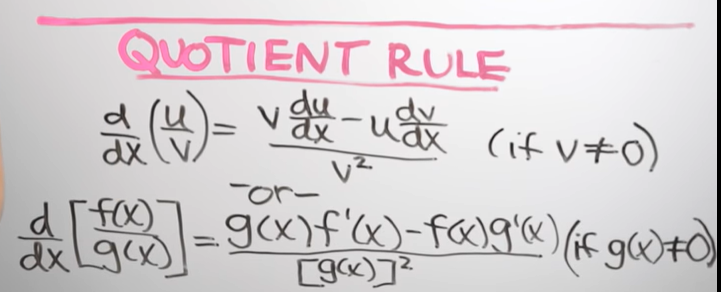 QUOTIENT RULE
d/dx (u/v) = (v du/dx - u dv/dx)/v² (if v≠0)
-or-
d/dx [f(x)/g(x)] = (g(x)f'(x)-f(x)g'(x))/[g(x)]² (if g(x)≠0)